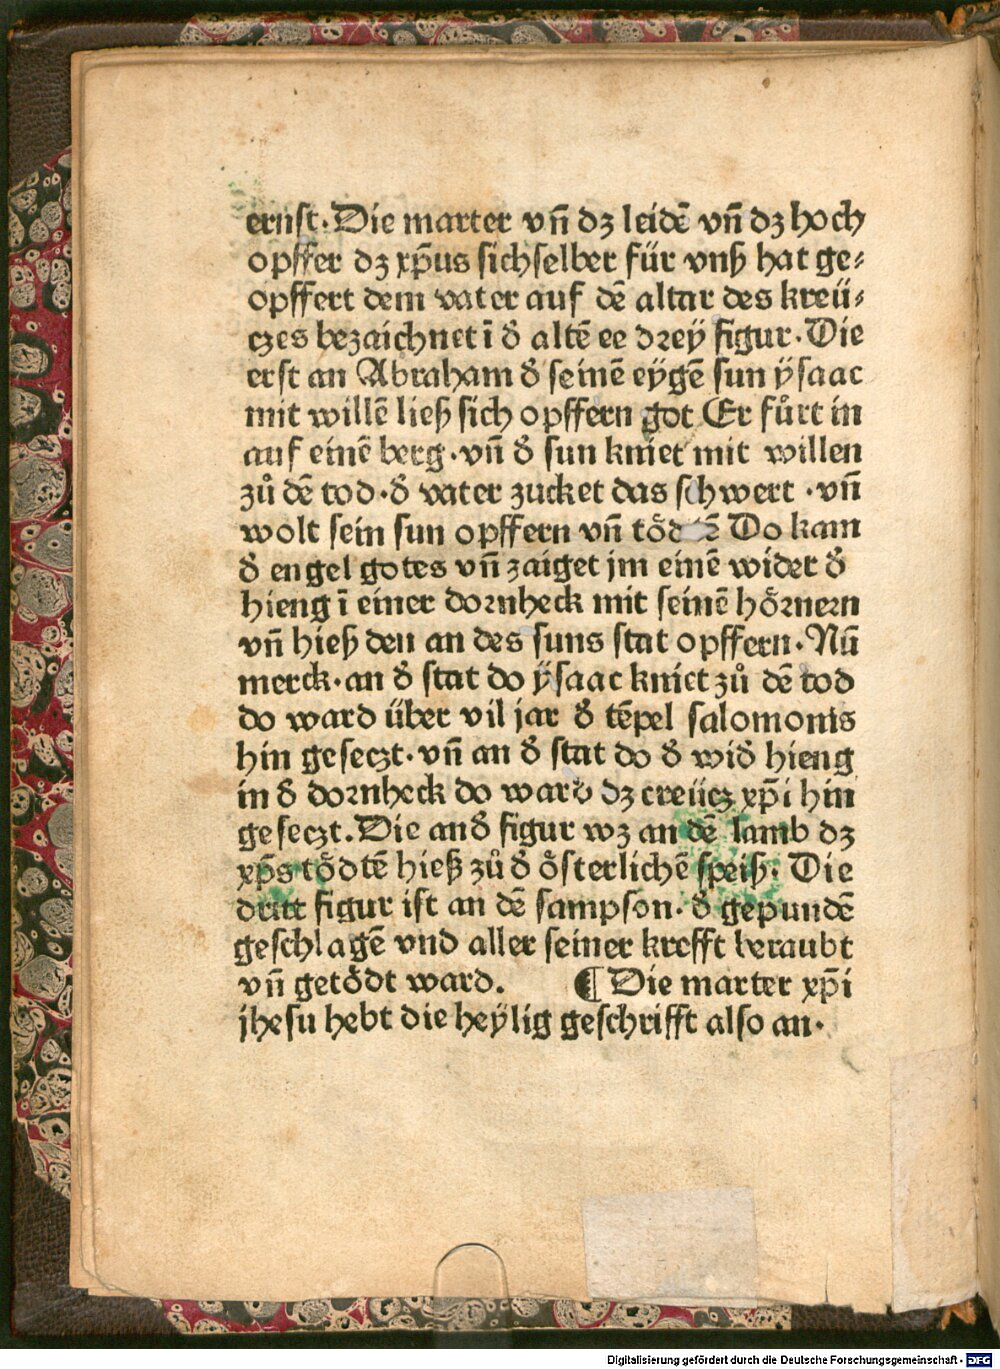 ernst. Die marter vn̄ dz leidē vn̄ dz hoch
opffer dz xp̄us sichselber für vnß hat ge⸗
opffert dem vater auf dē altar des kreü⸗
czes bezaichnet ī d̕ altē ee drey figur. Die
erst an Abraham d̕ seinē eygē sun ÿsaac
mit willē ließ sich opffern got Er fůrt in
auf einē berg. vn̄ d̕ sun kniet mit willen
zů dē tod. d̕ vater zucket das schwert . vn̄
wolt sein sun opffern vn̄ Do kam
d̕ engel gotes vn̄ zaiget jm einē wider d̕
hieng ī einer dornheck mit seinē hoͤrnern
vn̄ hieß den an des suns stat opffern. Nū
merck. an d̕ stat do ÿsaac kniet zů dē tod
do ward über vil jar d̕ tēpel salomonis
hin geseczt. vn̄ an d̕ stat do d̕ wid̕ hieng
in d̕ dornheck do ward dz creücz xp̄i hin
geseczt. Die and̕ figur wz an dē lamb dz
xp̄s toͤdtē hieß zů d̕ oͤsterlichē speiß. Die
dritt figur ist an dē sampson. d̕ gepundē
geschlagē vnd aller seiner krefft beraubt
vn̄ getoͤdt ward. ¶ Die marter xp̄i
jhesu hebt die heÿlig geschrifft also an.
Digitalisierung gefördert durch die Deutsche Forschungsgemeinschaft - DFG